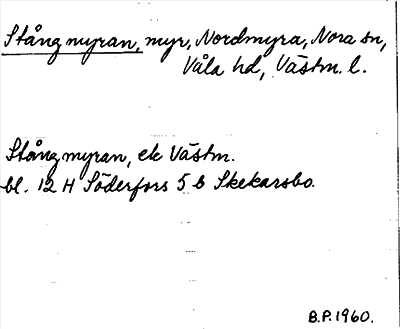 Stångmyran, myr, Nordmyra, Nora sn,
Våla hd, Västm. l.
Stångmyran, ek Västm.
bl. 12 H Söderfors 5 b Skekarsbo.
B.P. 1960.